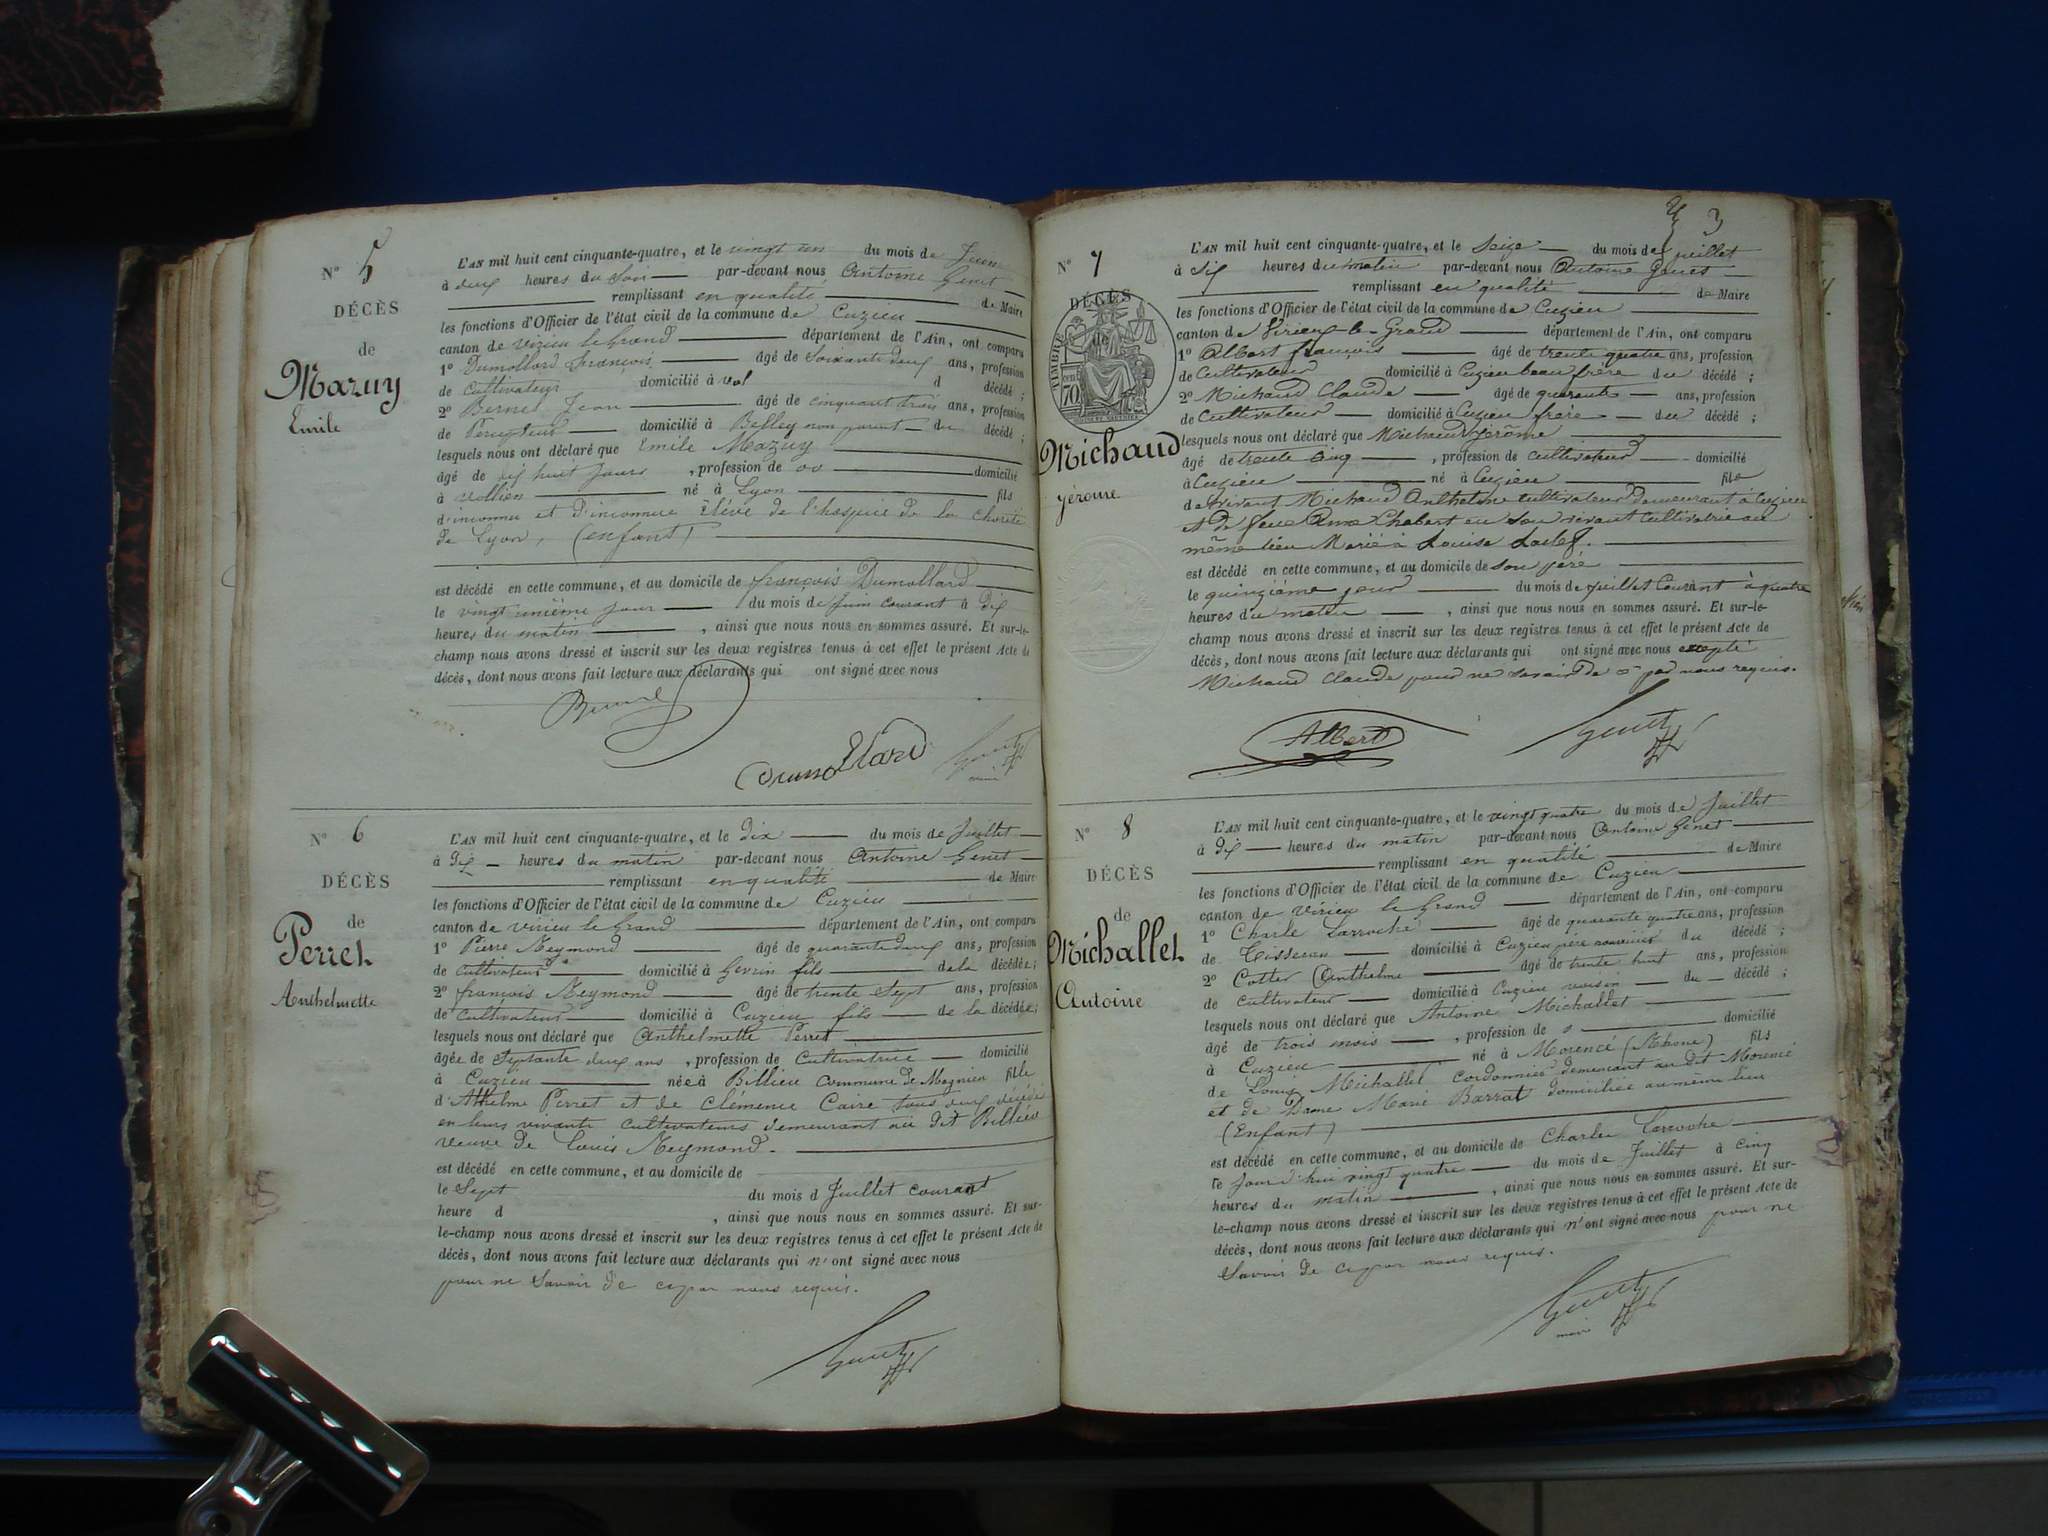 N° 5
DÉCÈS
de
Mazuy
Emile
L'AN mil huit cent cinquante-quatre, et le vingt un du mois de Juin
à deux heures du Soir par-devant nous Antoine Genet
remplissant en qualité de Maire
les fonctions d'Officier de l'état civil de la commune de Cuzieu
canton de virieu le Grand département de l'Ain, ont comparu
1° Dumollard François âgé de Soixante deux ans, profession
de Cultivateur domicilié à vol d décédé ;
2° Bernet Jean âgé de cinquant trois ans, profession
de Percepteur domicilié à Belley non parent du décédé ;
lesquels nous ont déclaré que Emile Mazuy
âgé de dix huit Jours , profession de oo domicilié
à vollien né à Lyon fils
d'inconnu et d'inconnue Elève de l'hospice de la Charité
de Lyon, (enfant)
est décédé en cette commune, et au domicile de françois Dumollard
le vingt unième jour du mois de Juin courant à Dix
heures du matin , ainsi que nous nous en sommes assuré. Et sur-le-
champ nous avons dressé et inscrit sur les deux registres tenus à cet effet le présent Acte de
décès, dont nous avons fait lecture aux déclarants qui ont signé avec nous
Dumollard
N° 6
DÉCÈS
de
Perret
Anthelmette
L'AN mil huit cent cinquante-quatre, et le Dix du mois de Juillet
à Dix heures du matin par-devant nous Antoine Genet
remplissant en qualité de Maire
les fonctions d'Officier de l'état civil de la commune de Cuzieu
canton de virieu le Grand département de l'Ain, ont comparu
1° Pierre Reymond âgé de quarante deux ans, profession
de Cultivateur domicilié à Gevrin fils de la décédée ;
2° françois Reymond âgé de trente Sept ans, profession
de Cultivateur domicilié à Cuzieu fils de la décédée ;
lesquels nous ont déclaré que Anthelmette Perret
âgée de Septante deux ans , profession de Cultivatrice domicilié
à Cuzieu née à Billieu commune de Magnieu fille
d'Athelme Perret et de Clémence Caire tous deux décédé
en leurs vivants cultivateurs demeurant au dit Billieu
veuve de Louis Reymond.
est décédé en cette commune, et au domicile de
le Sept du mois d Juillet courant
heure d , ainsi que nous nous en sommes assuré. Et sur-
le-champ nous avons dressé et inscrit sur les deux registres tenus à cet effet le présent Acte de
décès, dont nous avons fait lecture aux déclarants qui n'ont signé avec nous
pour ne Savoir de ce par nous requis.
3
N° 7
DÉCÈS
de
TIMBRE
70
Michaud
jérome
L'AN mil huit cent cinquante-quatre, et le Seize du mois de juillet
à Six heures du matin par-devant nous Antoine Genet
remplissant en qualité de Maire
les fonctions d'Officier de l'état civil de la commune de Cuzieu
canton de Virieux-le-Grand département de l'Ain, ont comparu
1° Albert françois âgé de trente quatre ans, profession
de Cultivateur domicilié à Cuzieu beau frère du décédé ;
2° Michaud Claude âgé de quarente ans, profession
de Cultivateur domicilié à Cuzieu frère du décédé ;
lesquels nous ont déclaré que Michaud jérôme
âgé de trente Cinq , profession de cultivateur domicilié
à Cuzieu né à Cuzieu fils
de vivant Michaud Anthelme cultivateur demeurant à Cuzieu
et de feue Chabert en son vivant Cultivatrice au
même lieu Marié à Louise
est décédé en cette commune, et au domicile de son père
le quinzième jour du mois de juillet Courant à quatre
heures du matin , ainsi que nous nous en sommes assuré. Et sur-le-
champ nous avons dressé et inscrit sur les deux registres tenus à cet effet le présent Acte de
décès, dont nous avons fait lecture aux déclarants qui ont signé avec nous excepté
Michaud Claude pour ne savoir de par nous requis.
Albert
N° 8
DÉCÈS
de
Michallet
Antoine
L'AN mil huit cent cinquante-quatre, et le vingt quatre du mois de Juillet
à Dix heures du matin par-devant nous Antoine Genet
remplissant en qualité de Maire
les fonctions d'Officier de l'état civil de la commune de Cuzieu
canton de Virieu le Grand département de l'Ain, ont comparu
1° Charle Larroche âgé de quarante quatre ans, profession
de Tisserau domicilié à Cuzieu père nourricier du décédé ;
2° Cotter Anthelme âgé de trente huit ans, profession
de cultivateur domicilié à Cuzieu voisin du décédé ;
lesquels nous ont déclaré que Antoine Michallet
âgé de trois mois , profession de domicilié
à Cuzieu né à Morencé (Rhone) fils
de Louis Michallet cordonnier demeurant au dit Morencé
et de Dame Marie Barrat domiciliée au même lieu
(Enfant)
est décédé en cette commune, et au domicile de Charle Larroche
le jourd'hui vingt quatre du mois de Juillet à Cinq
heures du matin , ainsi que nous nous en sommes assuré. Et sur-
le-champ nous avons dressé et inscrit sur les deux registres tenus à cet effet le présent Acte de
décès, dont nous avons fait lecture aux déclarants qui n'ont signé avec nous pour ne
Savoir de ce par nous requis.